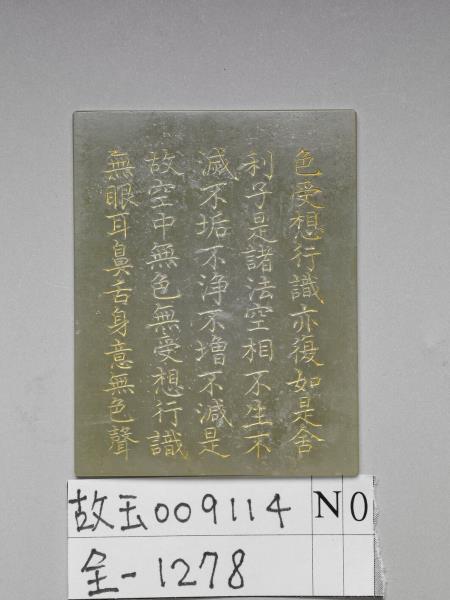 色受想行識亦復如是舍
利子是諸法空相不生不
滅不垢不淨不增不減是
故空中無色無受想行識
無眼耳鼻舌身意無色聲
故玉009114 NO
全-1278